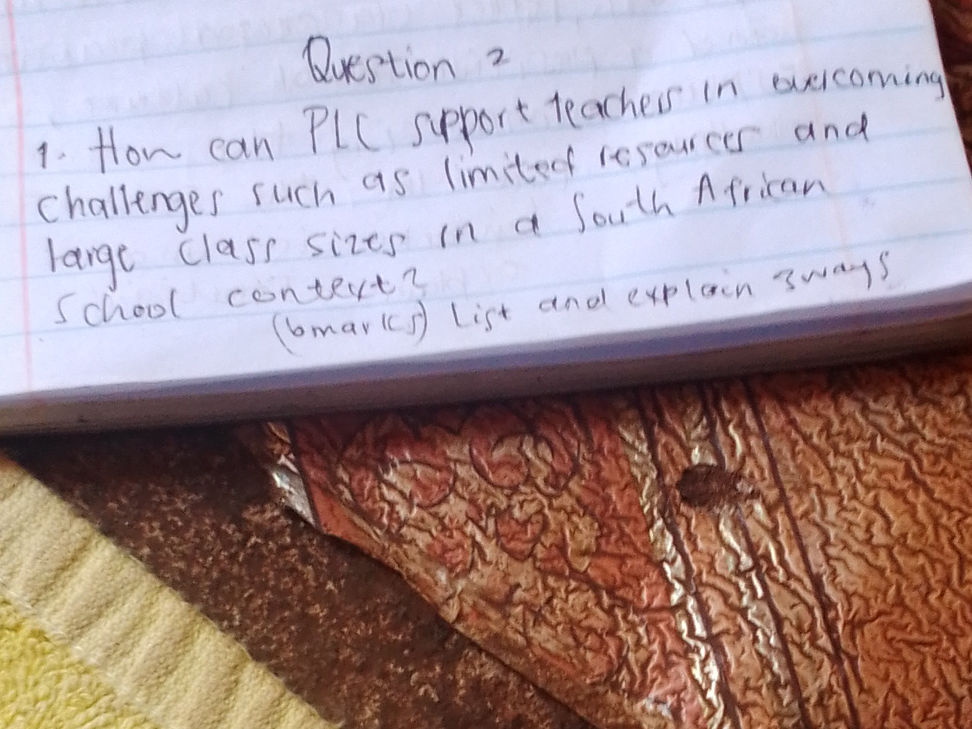 Question 2
1. How can PLC support teachers in overcoming
challenges such as limited resources and
large class sizes in a South African
School context?
(6marks) List and explain 3ways